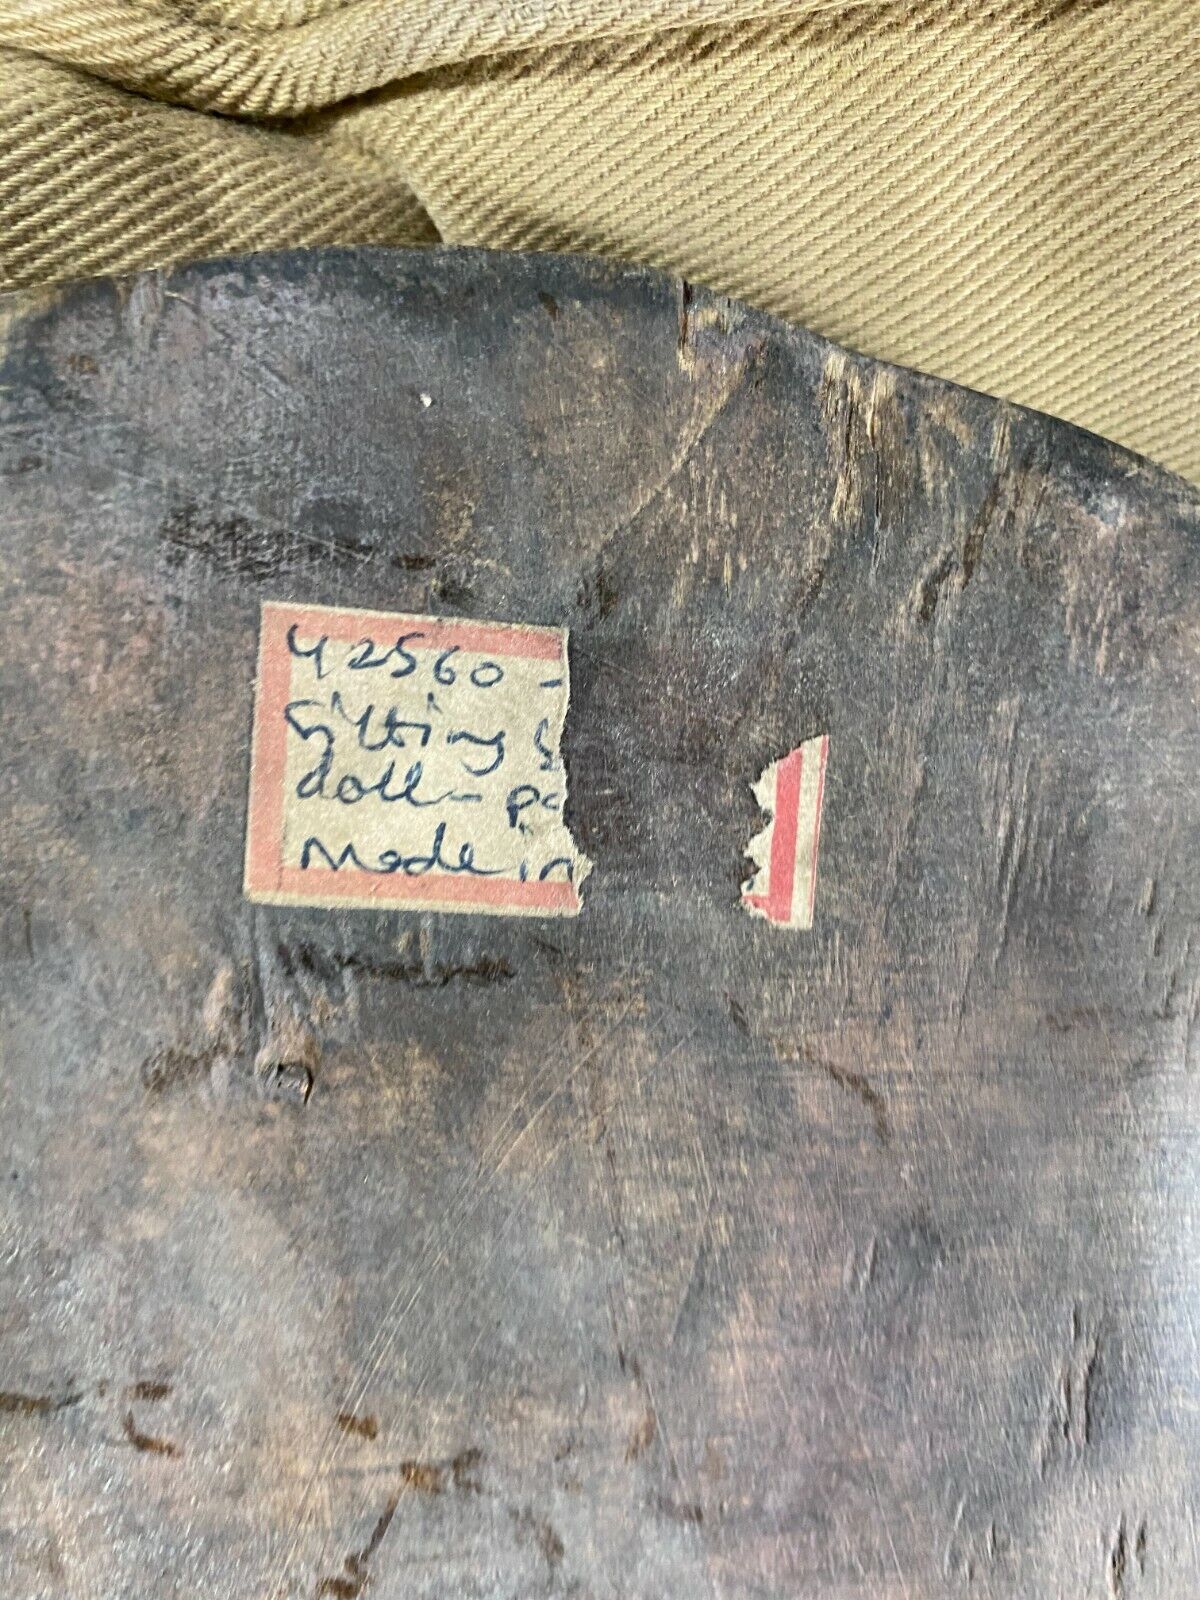 42560 -
Sitting
doll - p
made in